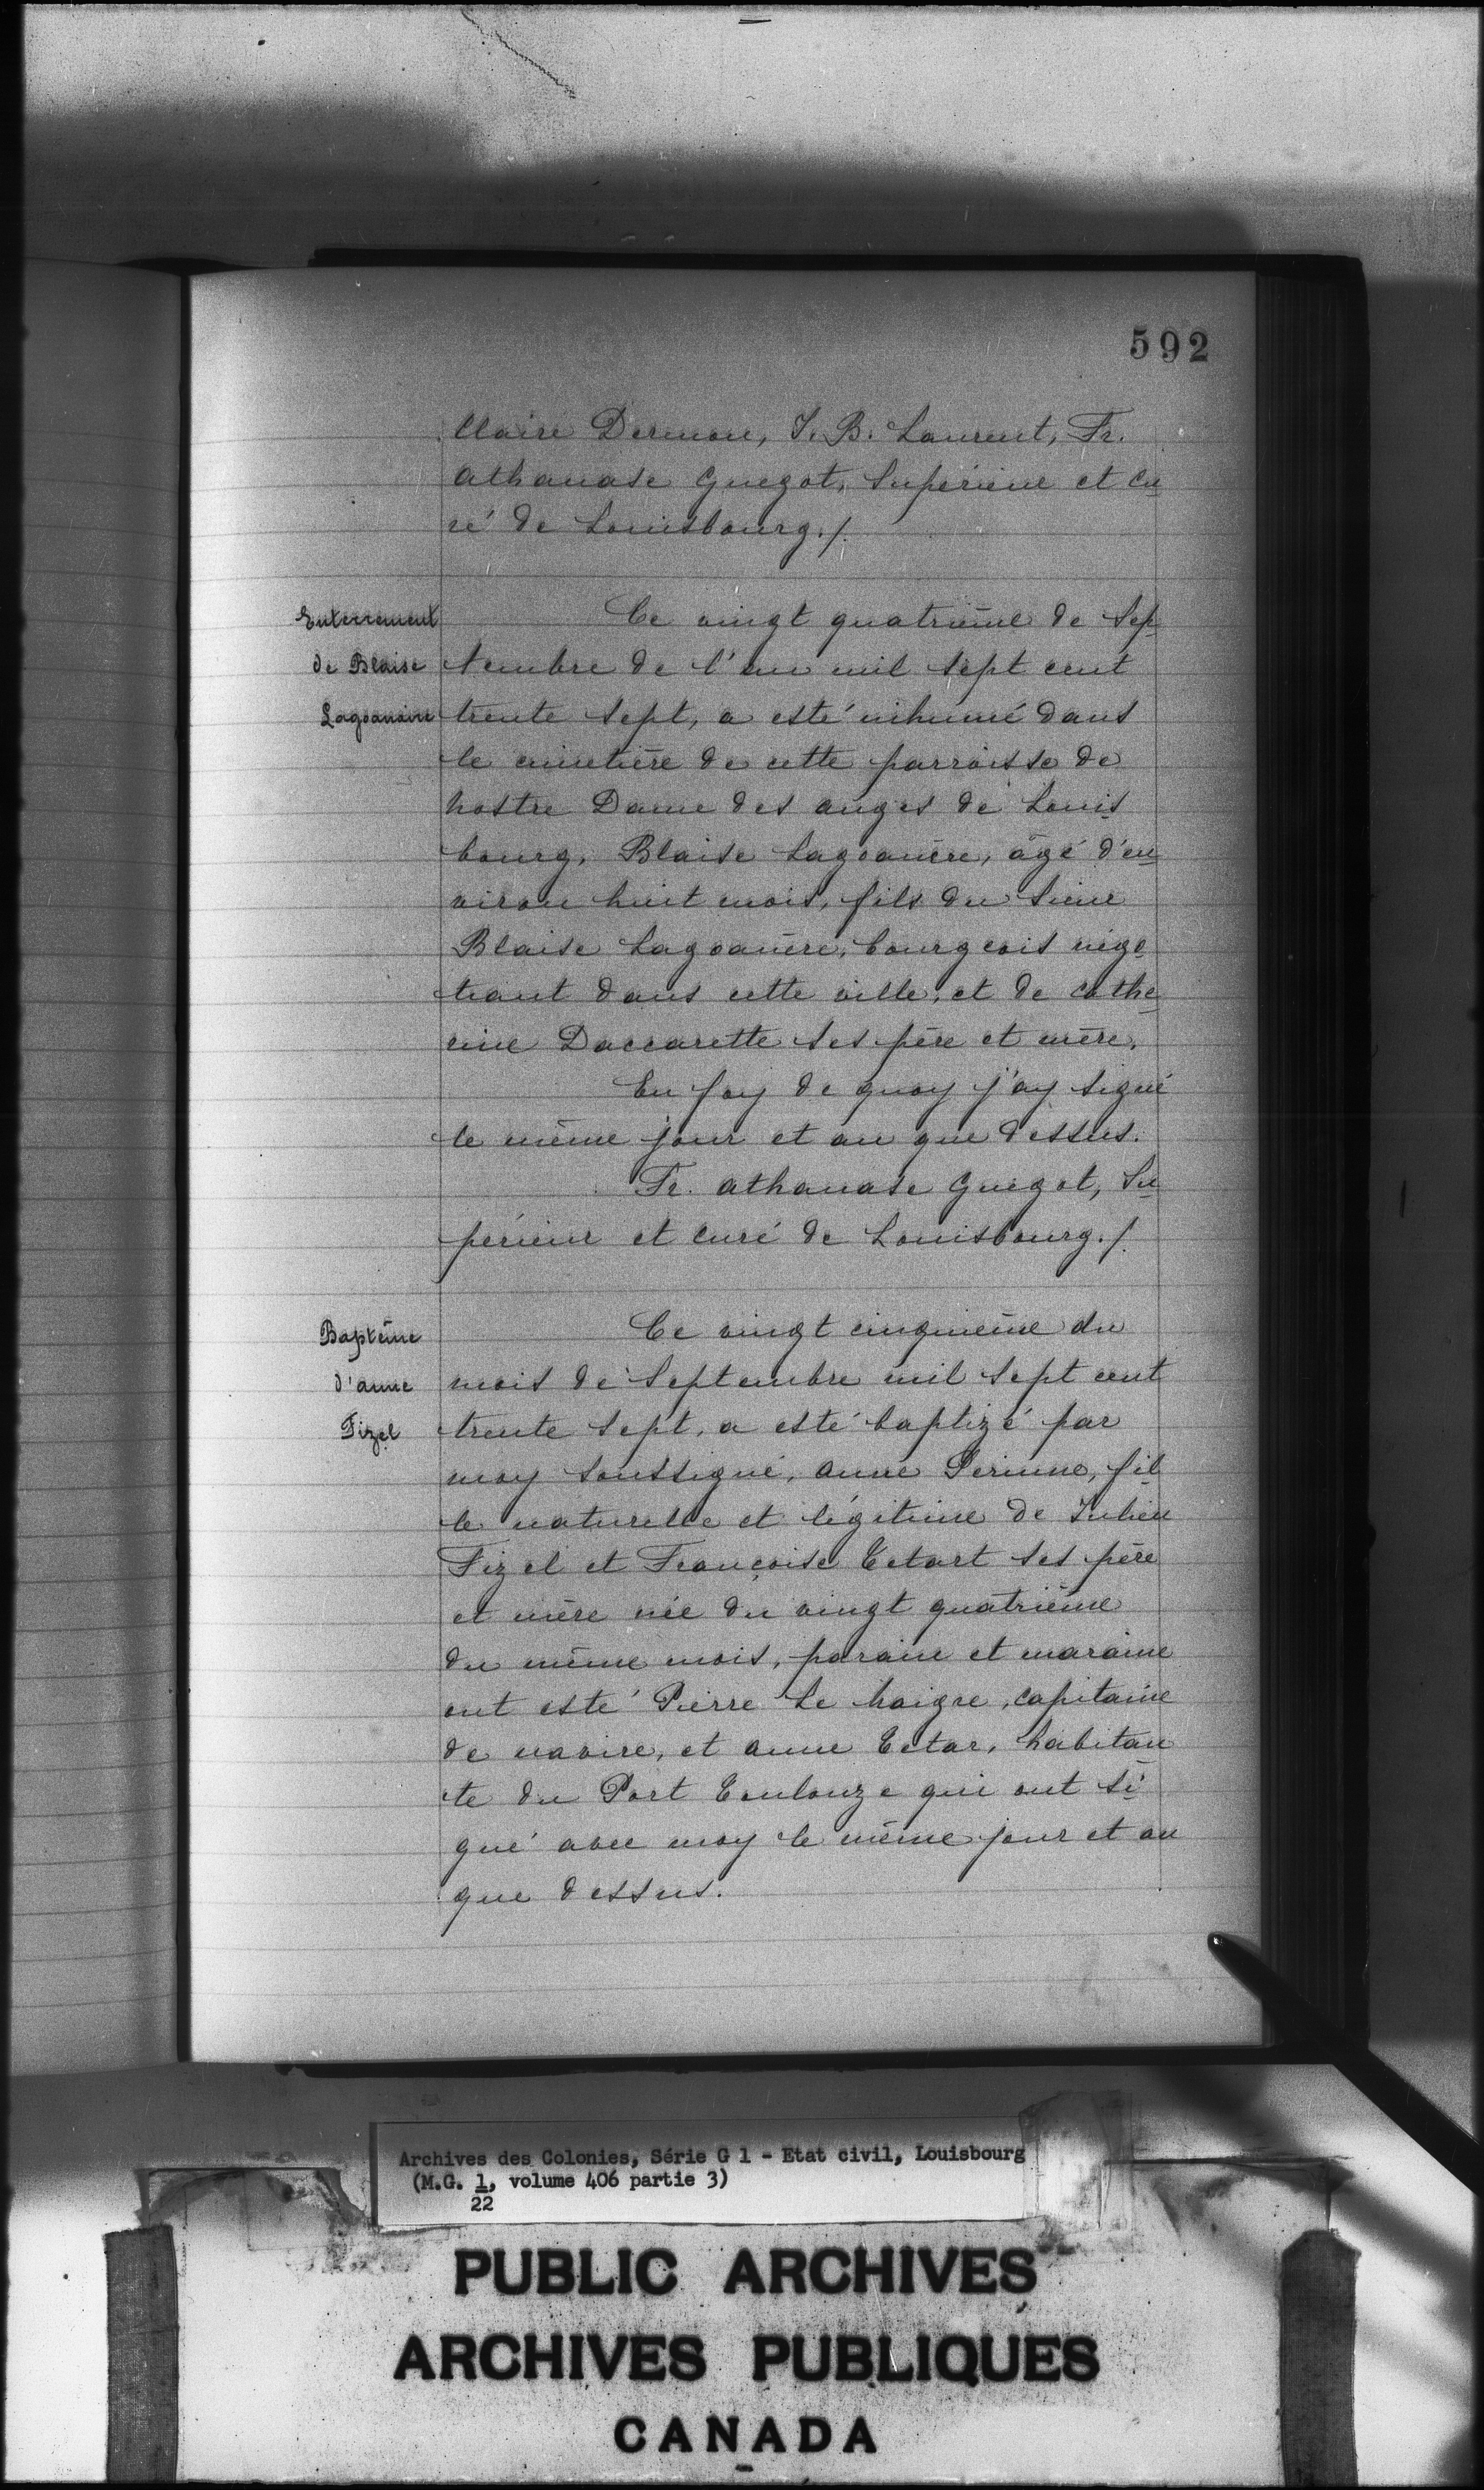 592
Claire Dermou, J. B. Laurent, Fr.
athanase Guegot, Supérieur et Cu
ré de Louisbourg./.
Enterrement
de Blaise
Lagoanère
Ce vingt quatrième de Sep
tembre de l'an mil sept cent
trente sept, a esté inhumé dans
le cimetière de cette parroisse de
nostre Dame des anges de Louis
bourg, Blaise Lagoanère, âgé d'en
viron huit mois, fils du Sieur
Blaise Lagoanère, bourgeois négo
tiant dans cette ville, et de Cathe
rine Daccarette ses père et mère.
En foy de quoy j'ay signé
le même jour et an que dessus.
Fr. athanase Guegot, Su
périeur et curé de Louisbourg./.
Baptême
d'anne
Fizel
Ce vingt cinquième du
mois de Septembre mil sept cent
trente sept, a esté baptizé par
moy soussigné, anne Perinne, fil
le naturelle et légitime de Julien
Fizel et Françoise Tetart ses père
et mère née du vingt quatrième
du même mois, paraine et maraine
ont esté Pierre Le haigre, capitaine
de navire, et anne Tetar, habitan
te du Port Toulouze qui ont si
gné avec moy le même jour et an
que dessus.
Archives des Colonies, Série G 1 - Etat civil, Louisbourg
(M.G. 1, volume 406 partie 3)
22
PUBLIC ARCHIVES
ARCHIVES PUBLIQUES
CANADA